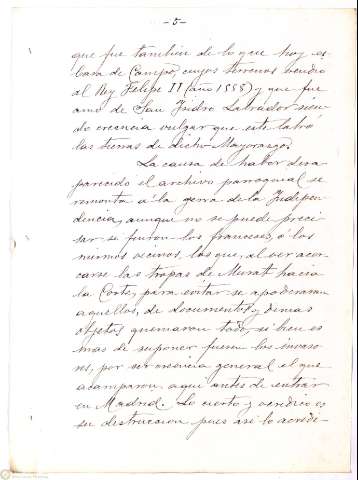 -5-
que fue tambien de lo que hoy es
Casa de Campo, cuyos terrenos vendio
al Rey Felipe II (año 1558) y que fue
amo de San Isidro Labrador sien-
do creencia vulgar que este labró
las tierras de dicho Mayorazgo.
La causa de haber desa-
parecido el archivo parroquial se
remonta a la gerra de la Indepen-
dencia, aunque no se puede preci-
sar si fueron los franceses, ó los
mismos vecinos, los que, al ver acer-
carse las tropas de Murat hacia
la Corte, para evitar se apoderaran
aquellos, de documentos y demas
objetos quemaron todo, si bien es
mas de suponer fueran los invaso-
res, por ser creencia general el que
acamparon aqui antes de entrar
en Madrid. Lo cierto y verídico es
su destruccion pues asi lo acredi-